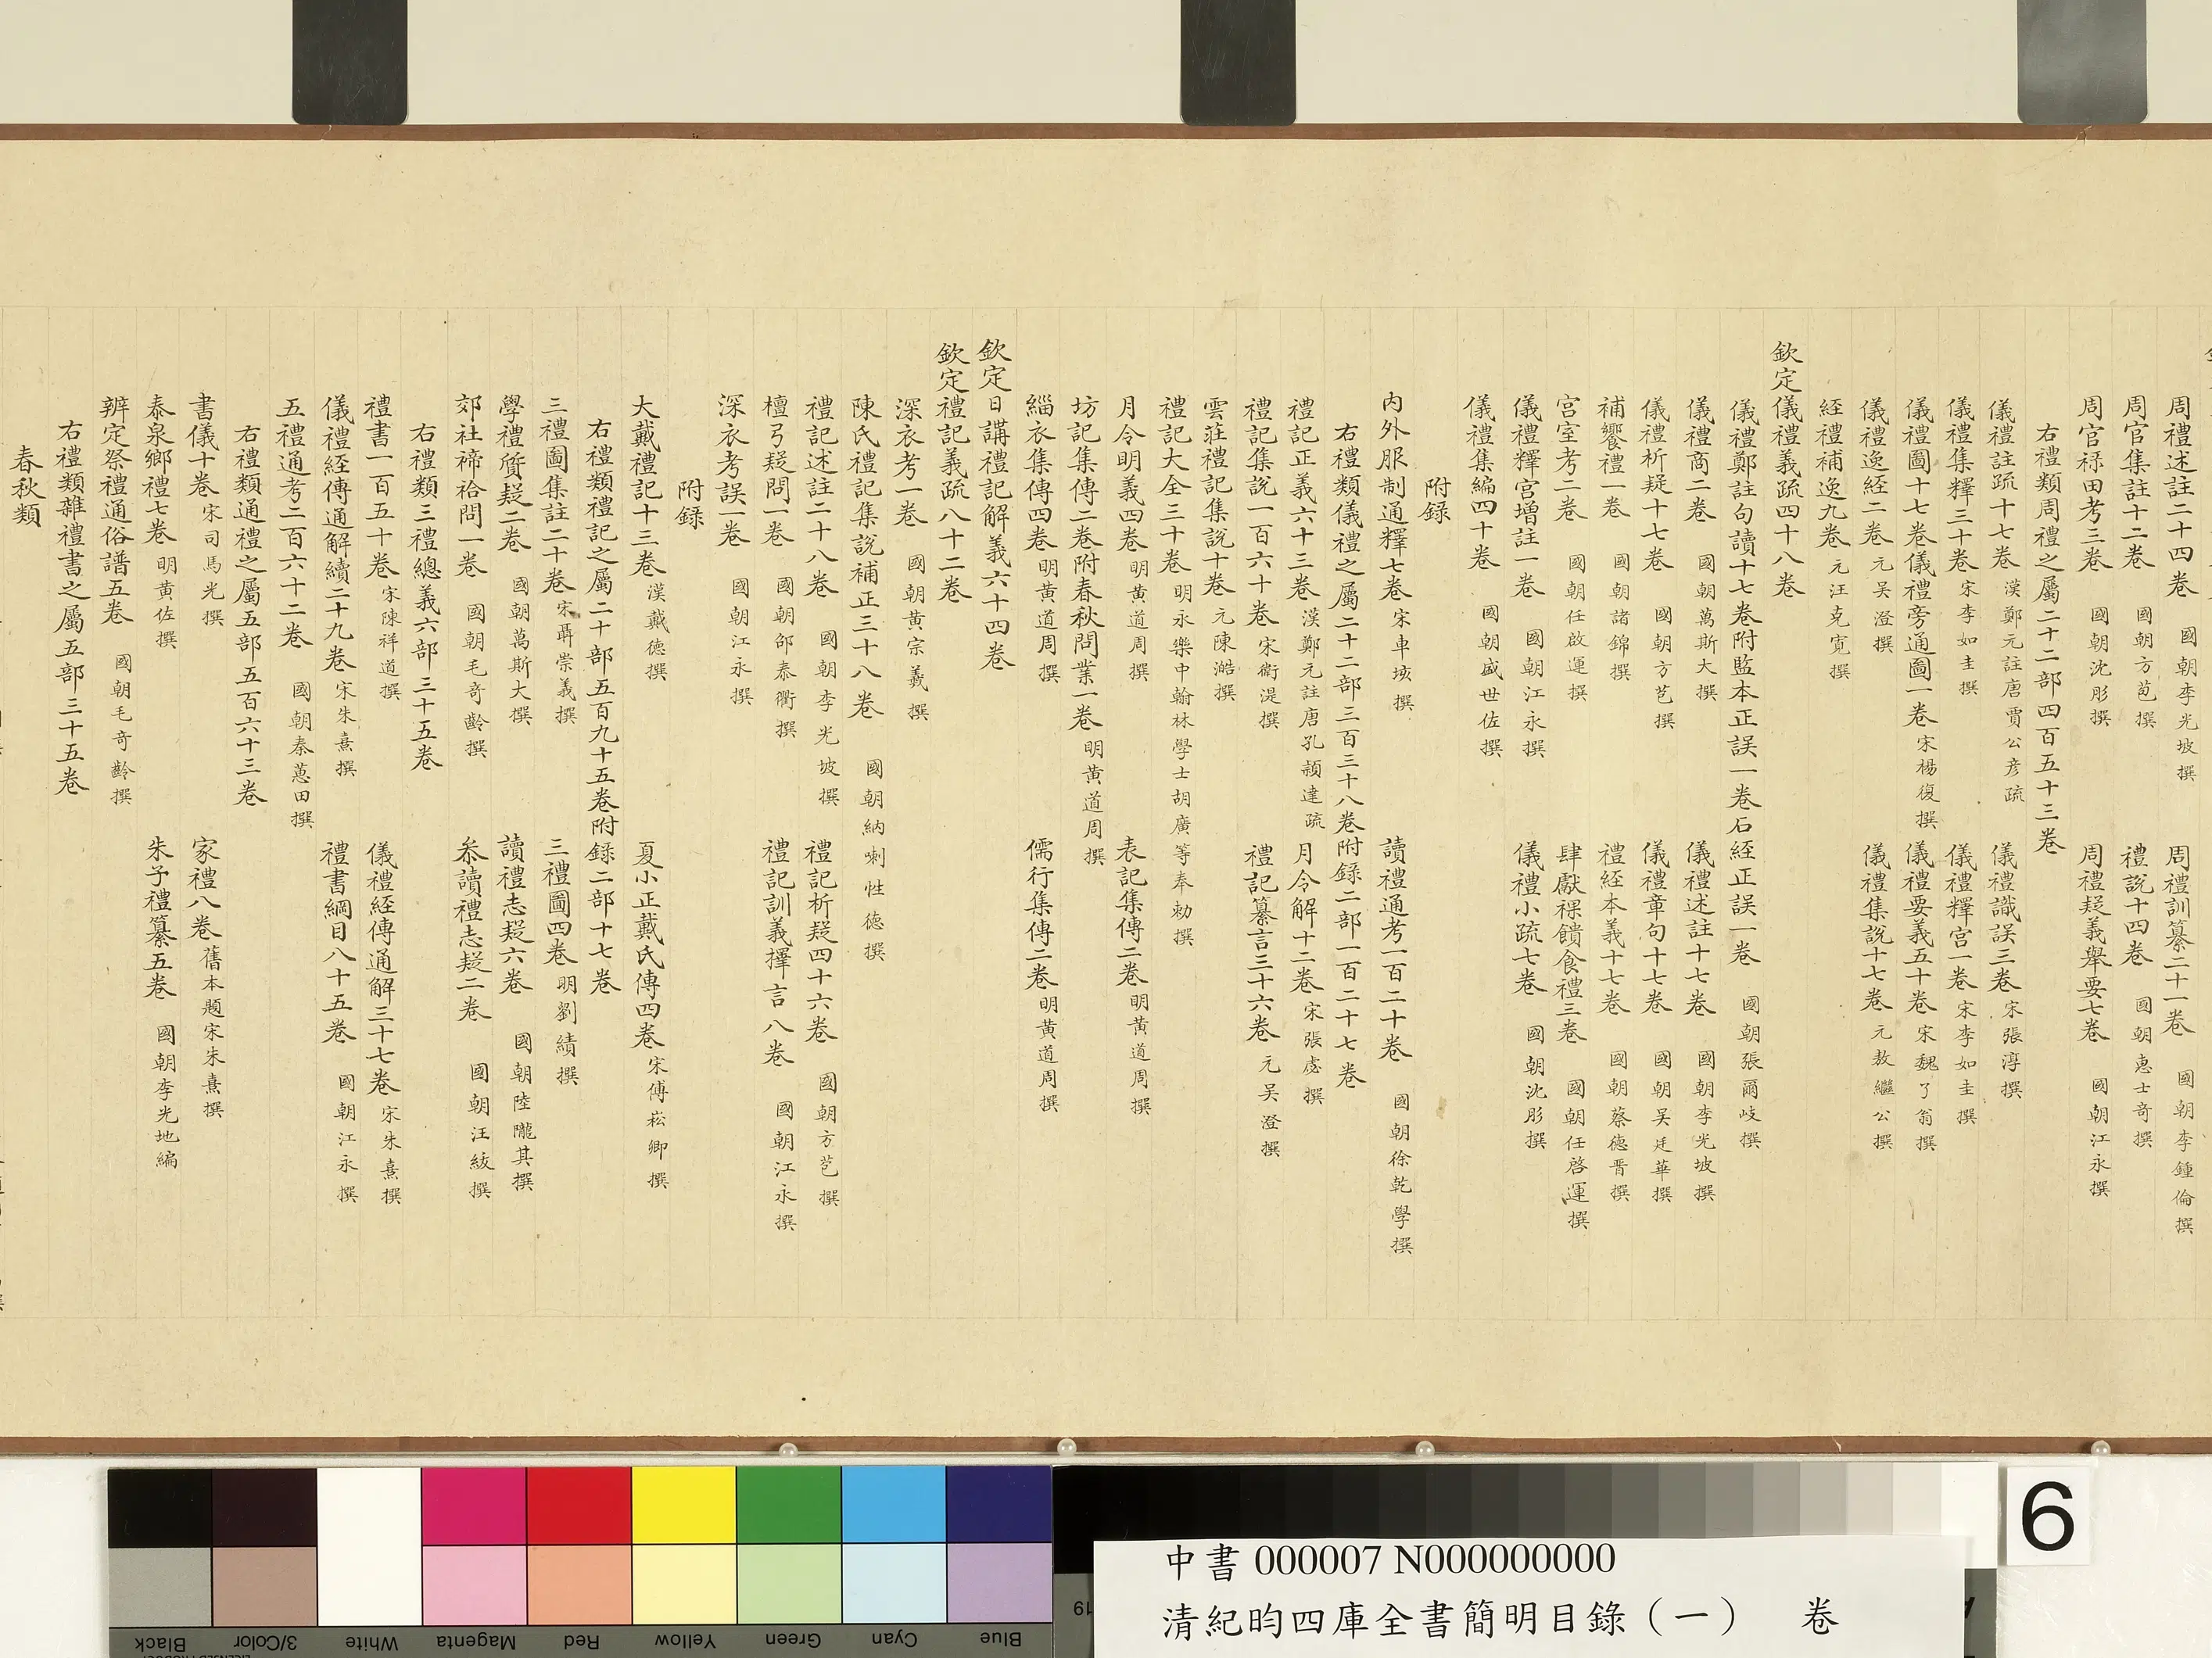 周禮述註二十四卷 國朝李光坡撰 周禮訓纂二十一卷 國朝李鍾倫撰
周官集註十二卷 國朝方苞撰 禮說十四卷 國朝惠士奇撰
周官祿田考三卷 國朝沈彤撰 周禮疑義舉要七卷 國朝江永撰
右禮類周禮之屬二十二部四百五十三卷
儀禮註疏十七卷 漢鄭元註唐賈公彥疏 儀禮識誤三卷 宋張淳撰
儀禮集釋三十卷 宋李如圭撰 儀禮釋宮一卷 宋李如圭撰
儀禮圖十七卷儀禮旁通圖一卷 宋楊復撰 儀禮要義五十卷 宋魏了翁撰
儀禮逸經二卷 元吳澄撰 儀禮集說十七卷 元敖繼公撰
經禮補逸九卷 元汪克寬撰
欽定儀禮義疏四十八卷
儀禮鄭註句讀十七卷附監本正誤一卷石經正誤一卷 國朝張爾岐撰
儀禮商二卷 國朝萬斯大撰 儀禮述註十七卷 國朝李光坡撰
儀禮析疑十七卷 國朝方苞撰 儀禮章句十七卷 國朝吳廷華撰
補饗禮一卷 國朝諸錦撰 禮經本義十七卷 國朝蔡德晉撰
宮室考二卷 國朝任啟運撰 肆獻祼饋食禮三卷 國朝任啓運撰
儀禮釋宮增註一卷 國朝江永撰 儀禮小疏七卷 國朝沈彤撰
儀禮集編四十卷 國朝盛世佐撰
附錄
內外服制通釋七卷 宋車垓撰 讀禮通考一百二十卷 國朝徐乾學撰
右禮類儀禮之屬二十二部三百三十八卷附錄二部一百二十七卷
禮記正義六十三卷 漢鄭元註唐孔穎達疏 月令解十二卷 宋張虙撰
禮記集說一百六十卷 宋衛湜撰 禮記纂言三十六卷 元吳澄撰
雲莊禮記集說十卷 元陳澔撰
禮記大全三十卷 明永樂中翰林學士胡廣等奉勅撰
月令明義四卷 明黃道周撰 表記集傳二卷 明黃道周撰
坊記集傳二卷附春秋問業一卷 明黃道周撰
緇衣集傳四卷 明黃道周撰 儒行集傳二卷 明黃道周撰
欽定日講禮記解義六十四卷
欽定禮記義疏八十二卷
深衣考一卷 國朝黃宗羲撰
陳氏禮記集說補正三十八卷 國朝納喇性德撰
禮記述註二十八卷 國朝李光坡撰 禮記析疑四十六卷 國朝方苞撰
檀弓疑問一卷 國朝邵泰衢撰 禮記訓義擇言八卷 國朝江永撰
深衣考誤一卷 國朝江永撰
附錄
大戴禮記十三卷 漢戴德撰 夏小正戴氏傳四卷 宋傅崧卿撰
右禮類禮記之屬二十部五百九十五卷附錄二部十七卷
三禮圖集註二十卷 宋聶崇義撰 三禮圖四卷 明劉績撰
學禮質疑二卷 國朝萬斯大撰 讀禮志疑六卷 國朝陸隴其撰
郊社禘祫問一卷 國朝毛奇齡撰 叅讀禮志疑二卷 國朝汪紱撰
右禮類三禮總義六部三十五卷
禮書一百五十卷 宋陳祥道撰 儀禮經傳通解三十七卷 宋朱熹撰
儀禮經傳通解續二十九卷 宋朱熹撰 禮書綱目八十五卷 國朝江永撰
五禮通考二百六十二卷 國朝秦蕙田撰
右禮類通禮之屬五部五百六十三卷
書儀十卷 宋司馬光撰 家禮八卷 舊本題宋朱熹撰
泰泉鄉禮七卷 明黃佐撰 朱子禮纂五卷 國朝李光地編
辨定祭禮通俗譜五卷 國朝毛奇齡撰
右禮類雜禮書之屬五部三十五卷
春秋類
Black
3/Color
White
Magenta
Red
Yellow
Green
Cyan
Blue
19
6
中書 000007 N000000000
清紀昀四庫全書簡明目錄（一） 卷